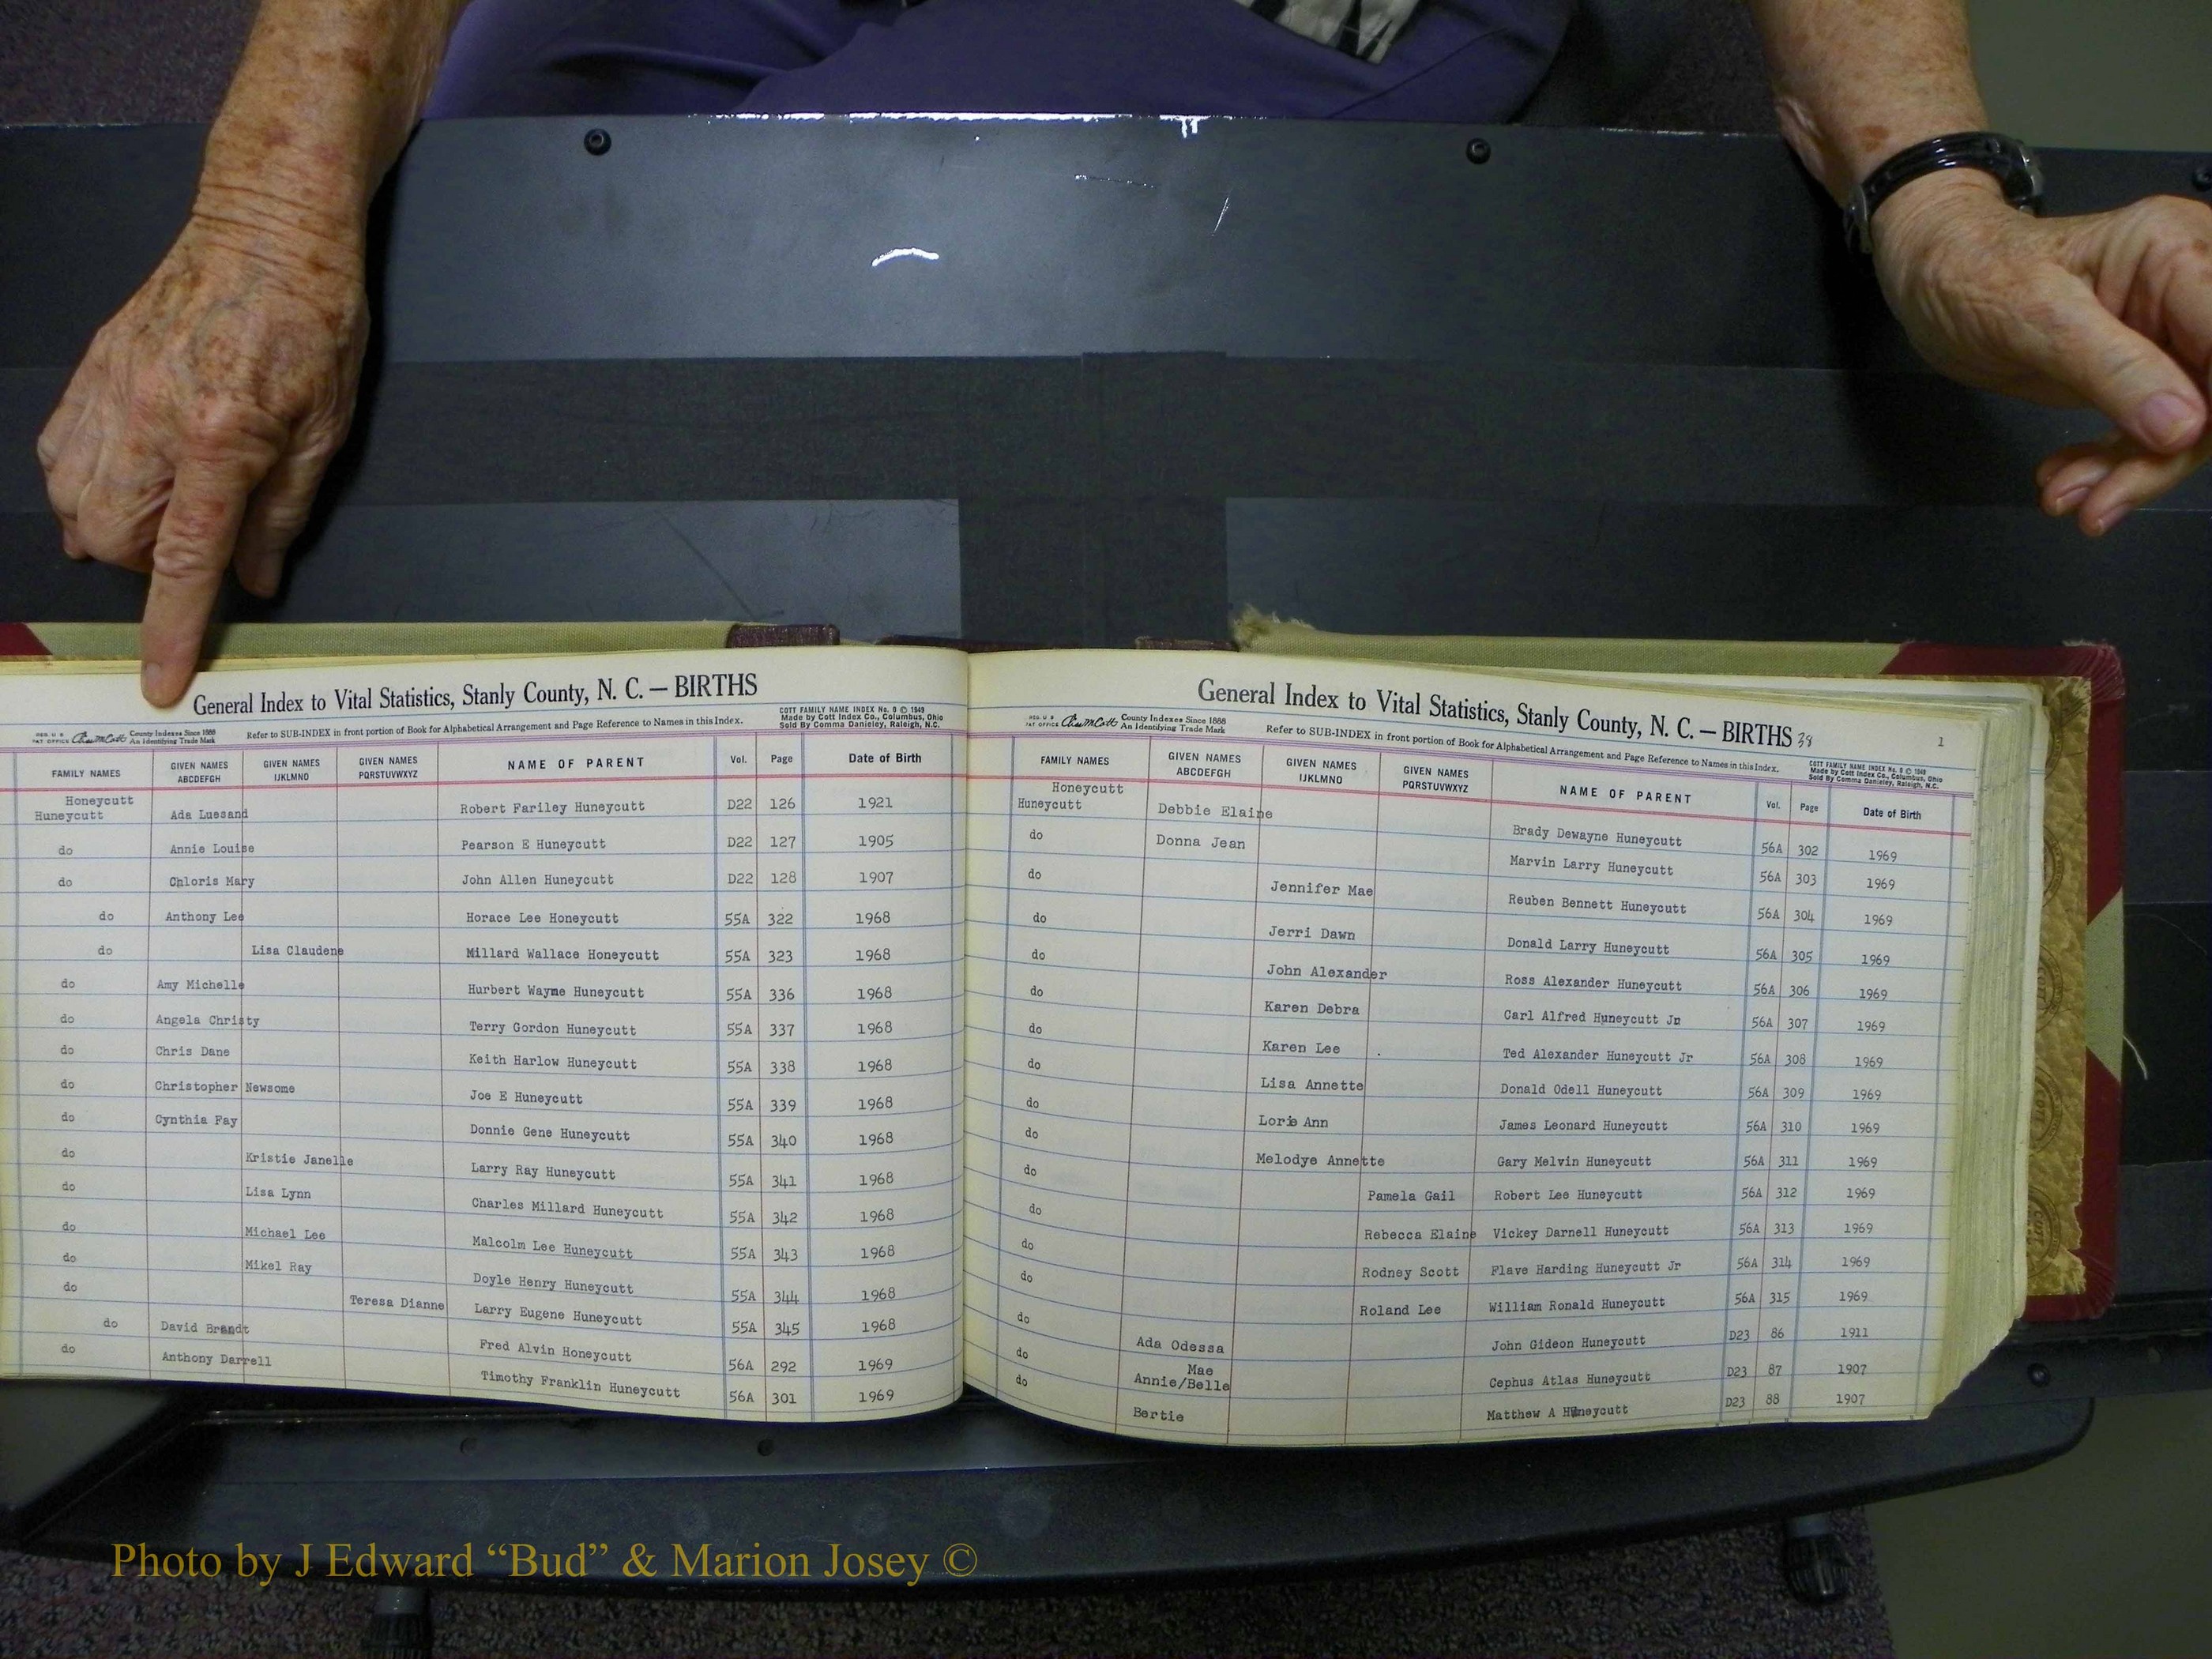 General Index to Vital Statistics, Stanly County, N. C. — BIRTHS
REG. U S PAT OFFICE County Indexes Since 1888 An Identifying Trade Mark
Refer to SUB-INDEX in front portion of Book for Alphabetical Arrangement and Page Reference to Names in this Index.
COTT FAMILY NAME INDEX No. 8 © 1949
Made by Cott Index Co., Columbus, Ohio
Sold By Comma Danieley, Raleigh, N.C.
FAMILY NAMES GIVEN NAMES ABCDEFGH GIVEN NAMES IJKLMNO GIVEN NAMES PQRSTUVWXYZ NAME OF PARENT Vol. Page Date of Birth
Honeycutt
Huneycutt Ada Luesand Robert Fariley Huneycutt D22 126 1921
do Annie Louise Pearson E Huneycutt D22 127 1905
do Chloris Mary John Allen Huneycutt D22 128 1907
do Anthony Lee Horace Lee Honeycutt 55A 322 1968
do Lisa Claudene Millard Wallace Honeycutt 55A 323 1968
do Amy Michelle Hurbert Wayne Huneycutt 55A 336 1968
do Angela Christy Terry Gordon Huneycutt 55A 337 1968
do Chris Dane Keith Harlow Huneycutt 55A 338 1968
do Christopher Newsome Joe E Huneycutt 55A 339 1968
do Cynthia Fay Donnie Gene Huneycutt 55A 340 1968
do Kristie Janelle Larry Ray Huneycutt 55A 341 1968
do Lisa Lynn Charles Millard Huneycutt 55A 342 1968
do Michael Lee Malcolm Lee Huneycutt 55A 343 1968
do Mikel Ray Doyle Henry Huneycutt 55A 344 1968
do Teresa Dianne Larry Eugene Huneycutt 55A 345 1968
do David Brandt Fred Alvin Honeycutt 56A 292 1969
do Anthony Darrell Timothy Franklin Huneycutt 56A 301 1969
General Index to Vital Statistics, Stanly County, N. C. — BIRTHS 38 1
REG. U S PAT OFFICE County Indexes Since 1888 An Identifying Trade Mark
Refer to SUB-INDEX in front portion of Book for Alphabetical Arrangement and Page Reference to Names in this Index.
COTT FAMILY NAME INDEX No. 8 © 1949
Made by Cott Index Co., Columbus, Ohio
Sold By Comma Danieley, Raleigh, N.C.
FAMILY NAMES GIVEN NAMES ABCDEFGH GIVEN NAMES IJKLMNO GIVEN NAMES PQRSTUVWXYZ NAME OF PARENT Vol. Page Date of Birth
Honeycutt
Huneycutt Debbie Elaine Brady Dewayne Huneycutt 56A 302 1969
do Donna Jean Marvin Larry Huneycutt 56A 303 1969
do Jennifer Mae Reuben Bennett Huneycutt 56A 304 1969
do Jerri Dawn Donald Larry Huneycutt 56A 305 1969
do John Alexander Ross Alexander Huneycutt 56A 306 1969
do Karen Debra Carl Alfred Huneycutt Jr 56A 307 1969
do Karen Lee Ted Alexander Huneycutt Jr 56A 308 1969
do Lisa Annette Donald Odell Huneycutt 56A 309 1969
do Lorie Ann James Leonard Huneycutt 56A 310 1969
do Melodye Annette Gary Melvin Huneycutt 56A 311 1969
do Pamela Gail Robert Lee Huneycutt 56A 312 1969
do Rebecca Elaine Vickey Darnell Huneycutt 56A 313 1969
do Rodney Scott Flave Harding Huneycutt Jr 56A 314 1969
do Roland Lee William Ronald Huneycutt 56A 315 1969
do Ada Odessa John Gideon Huneycutt D23 86 1911
do Mae Annie/Belle Cephus Atlas Huneycutt D23 87 1907
do Bertie Matthew A Huneycutt D23 88 1907
Photo by J Edward “Bud” & Marion Josey ©